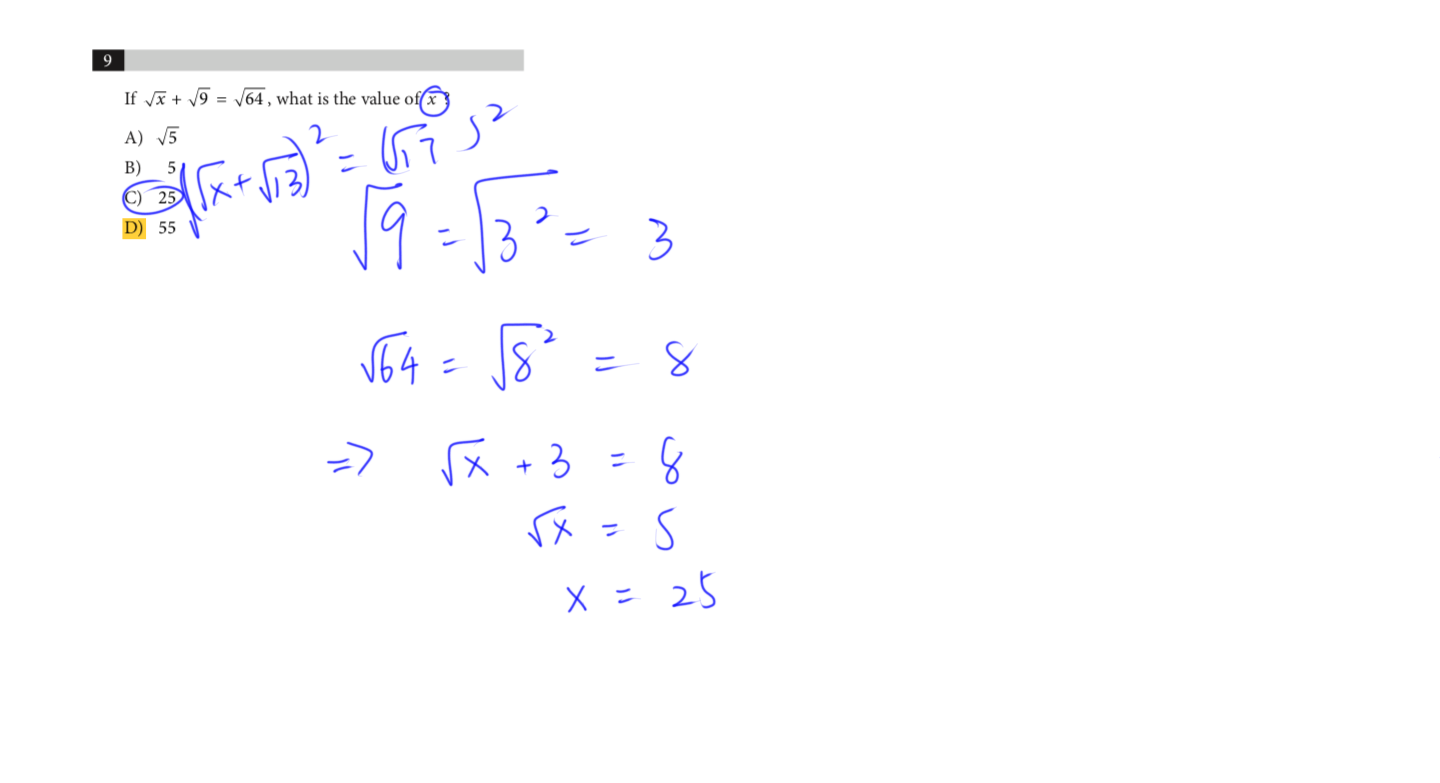 9
If √x + √9 = √64, what is the value of x?
A) √5
B) 5
C) 25
D) 55
(√x + √13)² = (√17)²
√9 = √3² = 3
√64 = √8² = 8
=> √x + 3 = 8
√x = 5
x = 25